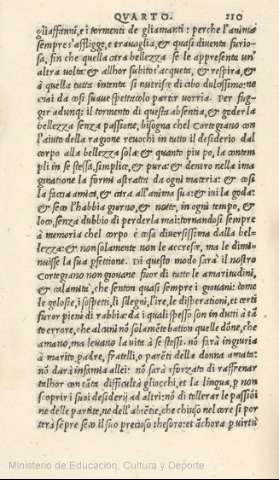 QVARTO. 210
gli affanni, e i tormenti de gli amanti: perche l'anima
sempre s'afflige, e trauaglia, & quasi diuenta furio
sa, fin che quella cara bellezza se le appresenta un'
altra uolta: & allhor subito s'acqueta, & respira, &
à quella tutta intenta si nutrisce di cibo dulcissimo: ne
mai da cosi suaue spettacolo partir uorria. Per fug-
gir adunque il tormento di questa absentia, & goder la
bellezza senza passione, bisogna che'l Cortegiano con
l'aiuto della ragione reuochi in tutto il desiderio dal
corpo alla bellezza sola: & quanto piu po, la contem
pli in se stessa, simplice, & pura: & dentro nella ima
ginatione la formi astratta da ogni materia: & cosi
la faccia amica, & cara all'anima sua: & iui la goda:
& seco l'habbia giorno, & notte, in ogni tempo, &
loco, senza dubbio di perderla mai: tornandosi sempre
à memoria che'l corpo è cosa diuersissima dalla bel-
lezza: & non solamente non le accresce, ma le dimi-
nuisce la sua perfettione. Di questo modo sarà il nostro
Cortegiano non giouane fuor di tutte le amaritudini,
& calamità, che senton quasi sempre i giouani: come
le gelosie, i sospetti, li sdegni, l'ire, le disperationi, & certi
furor pieni di rabbia: da i quali spesso son indutti à tã
to errore, che alcuni nõ solamẽte batton quelle dõne, che
amano, ma leuano la uita à se stessi: nõ farà ingiuria
à marito, padre, fratelli, o parẽti della donna amata:
nõ darà infamia à lei: nõ sarà sforzato di raffrenar
talhor con tãta difficultà gliocchi, et la lingua, p non
scoprir i suoi desiderij ad altri: nõ di tollerar le passiõi
ne delle partite, ne dell'absẽtie, che chiuso nel core si por
terà sẽpre seco il suo precioso thesoro: et ãchora p uirtù
Ministerio de Educación, Cultura y Deporte